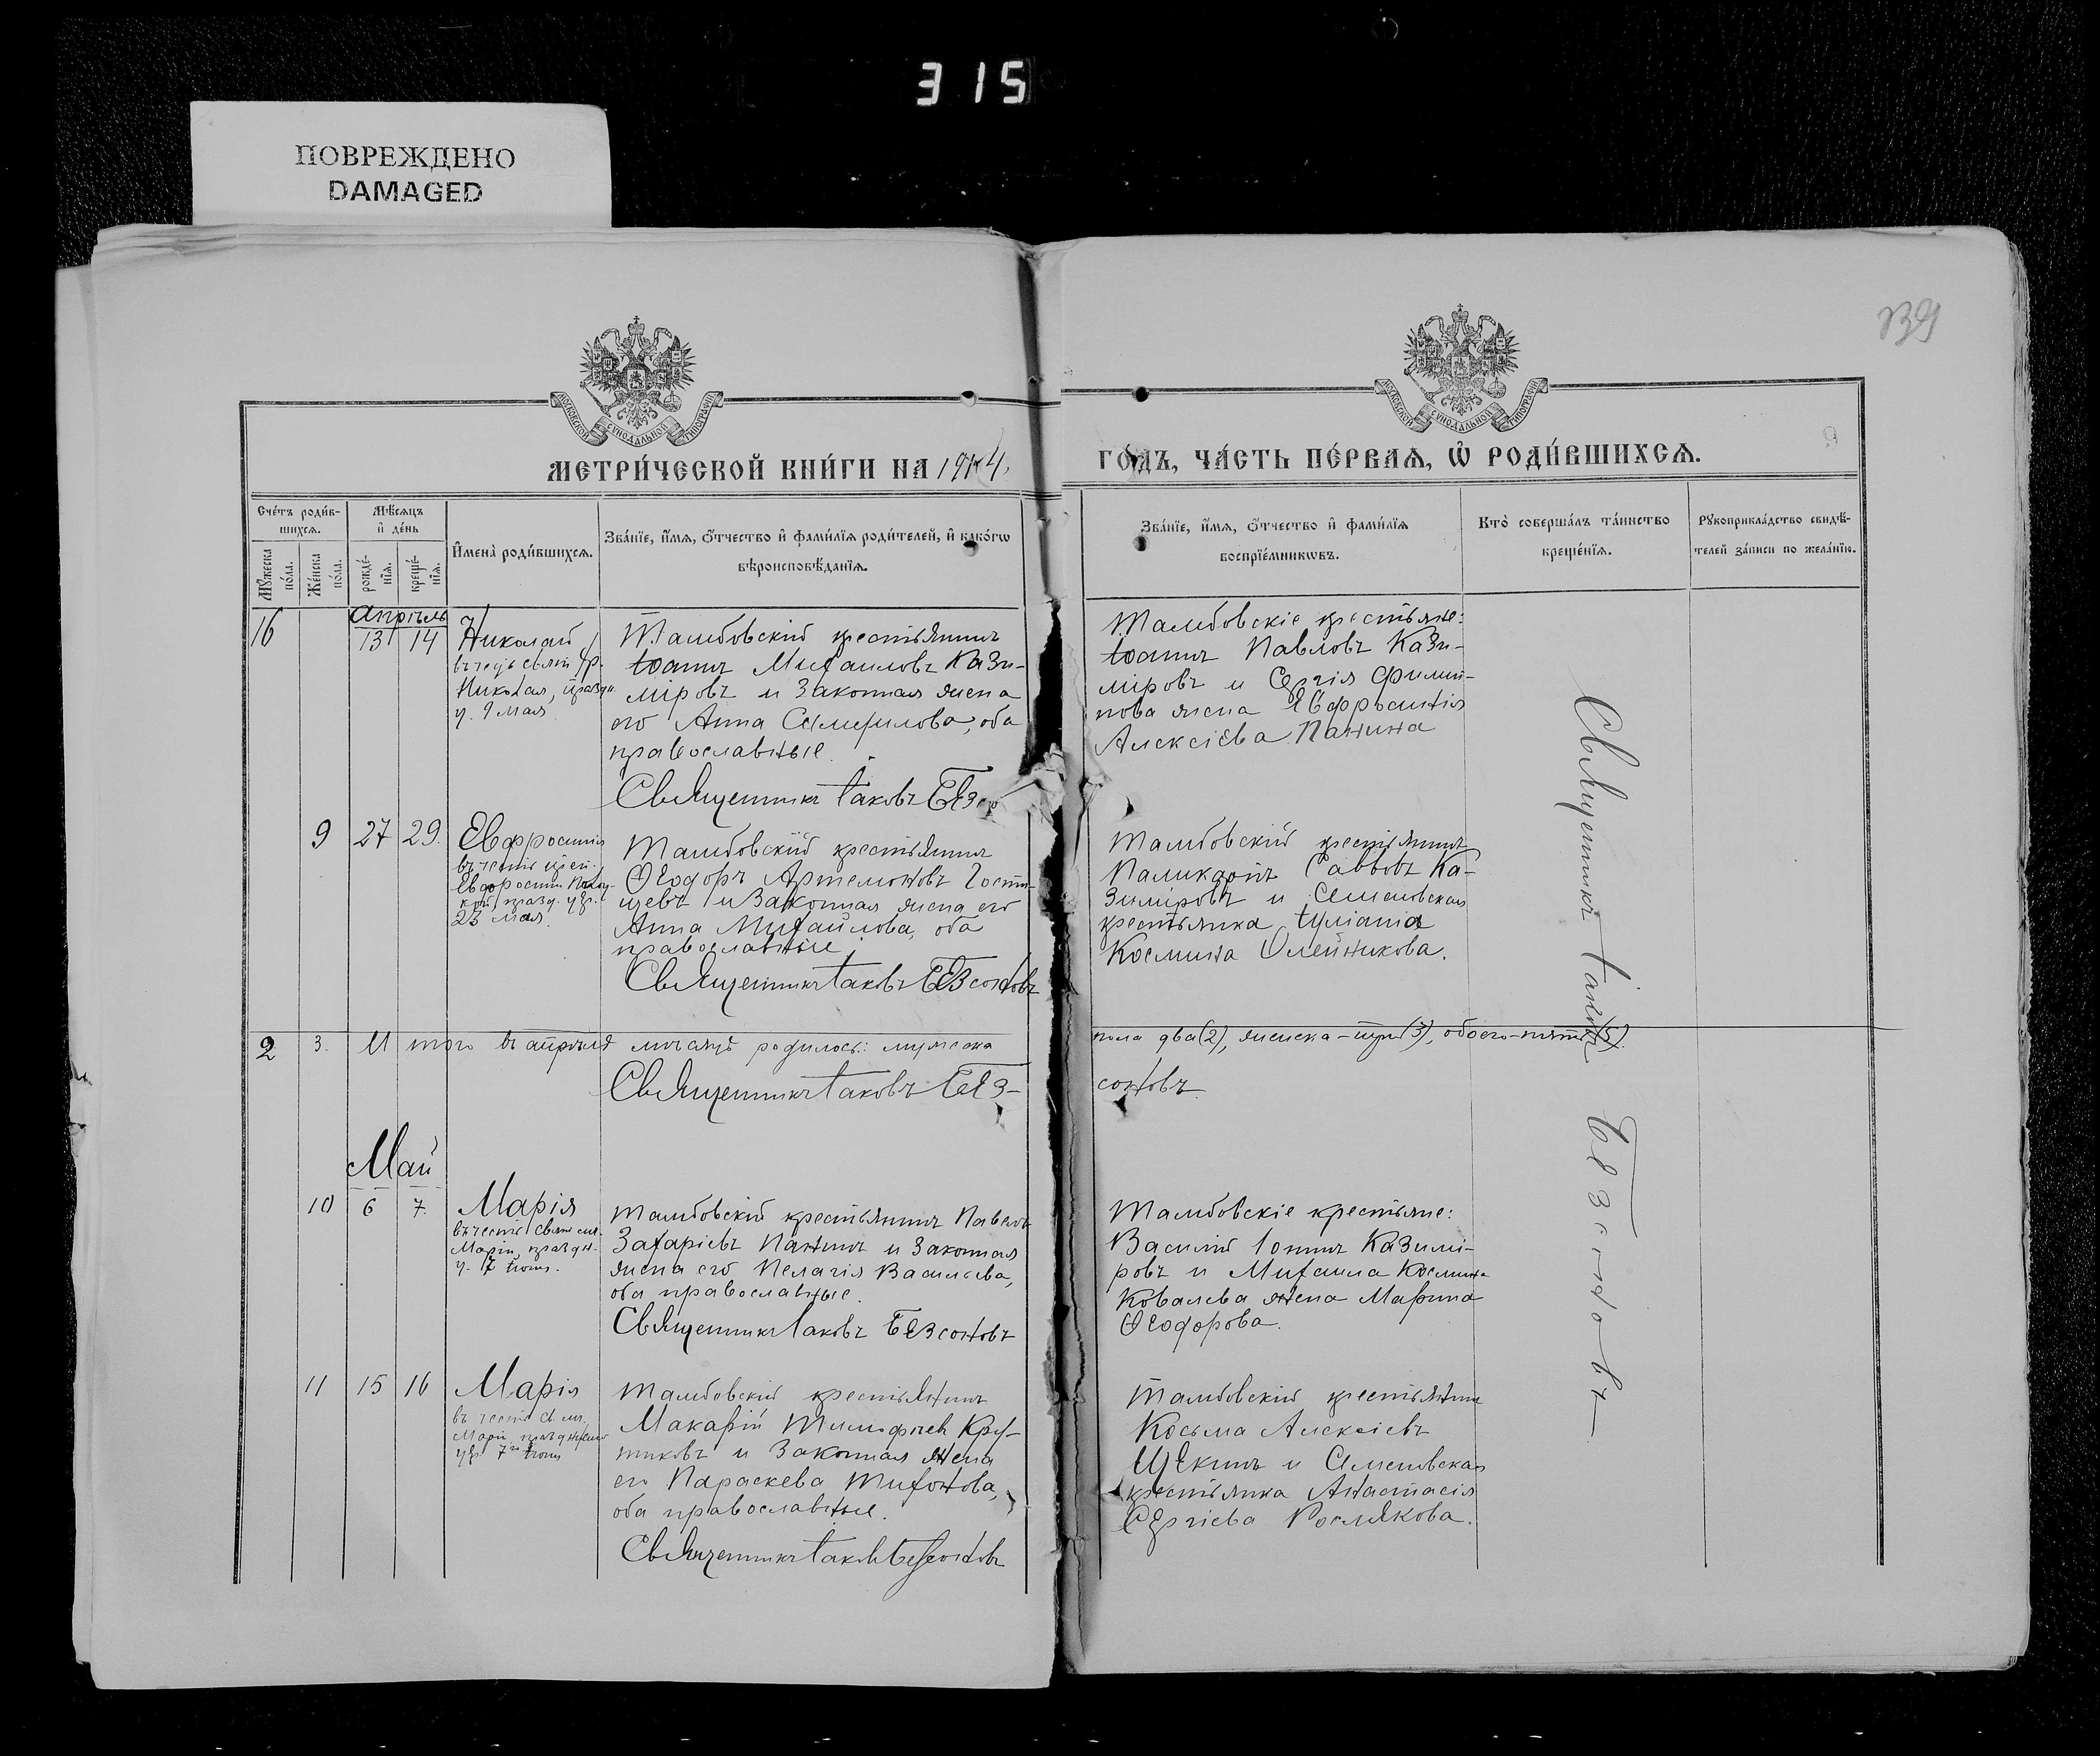 315
ПОВРЕЖДЕНО
DAMAGED
139
МОСКОВСКОЙ СѴНОДАЛЬНОЙ ТИПОГРАФІИ
МОСКОВСКОЙ СѴНОДАЛЬНОЙ ТИПОГРАФІИ
МЕТРИ́ЧЕСКОЙ КНИ́ГИ НА 1914
ГО́ДЪ, ЧА́СТЬ ПЕ́РВАѦ, Ѡ҆ РОДИ́ВШИХСѦ.
Сче́тъ роди́в-
шихсѧ.
Мꙋ́жеска
по́ла.
Же́нска
по́ла.
Мѣ́сѧцъ
и҆ де́нь
рожде́-
нїѧ.
креще́-
нїѧ.
И҆мена̀ роди́вшихсѧ.
Зва́нїе, и҆́мѧ, ѻ҆́тчество и҆ фами́лїѧ роди́телей, и҆ како́гѡ
вѣроисповѣ́данїѧ.
Зва́нїе, и҆́мѧ, ѻ҆́тчество и҆ фами́лїѧ
воспрїе́мникѡвъ.
Кто̀ соверша́лъ та́инство
креще́нїѧ.
Рꙋкоприкла́дство свидѣ́-
телей за́писи по жела́нїю.
Апрѣль
16 13 14 Николай
въ честь свят.
Николая, празд.
9 мая
Тамбовскій крестьянинъ
Іоаннъ Михаиловъ Кази-
міровъ и законная жена
его Анна Самуилова, оба
православные.
Священникъ Іаковъ Безсо
Тамбовскіе крестьяне:
Іоаннъ Павловъ Кази-
міровъ и Сергія Филип-
пова жена Евфросинія
Алексіева Панина
9 27 29 Евфросинія
въ честь
Евфросиніи
празд.
23 мая.
Тамбовскій крестьянинъ
Ѳеодоръ Артемоновъ Гости-
щевъ и законная жена его
Анна Михаилова, оба
православные.
Священникъ Іаковъ Безсоновъ
Тамбовскій крестьянинъ
Саввовъ Ка-
зиміровъ и Семеновская
крестьянка Іуліанія
Космина Олейникова.
2 3. Итого въ апрѣлѣ мѣсяцѣ родилось: мужеска
пола два (2), женска - три (3), обоего - пять (5).
Священникъ Іаковъ Без-
соновъ.
Май
10 6 7. Марія
въ честь
Маріи, праздн.
7 іюня.
Тамбовскій крестьянинъ Павелъ
Захаріевъ Панинъ и законная
жена его Пелагія Васильева,
оба православные.
Священникъ Іаковъ Безсоновъ
Тамбовскіе крестьяне:
Василій Іоаннъ Казимі-
ровъ и Михаила Космина
Ковалева жена Марина
Ѳеодорова.
11 15 16 Марія
въ честь св. мч.
Маріи
7го іюня
Тамбовскій крестьянинъ
Макарій Тимофеевъ Кру-
тиковъ и законная жена
его Параскева Тихонова,
оба православные.
Священникъ Іаковъ Безсоновъ
Тамбовскій крестьянинъ
Косьма Алексіевъ
Щекинъ и Семеновская
крестьянка Анастасія
Сергіева Рослякова.
Священникъ Іаковъ Безсоновъ